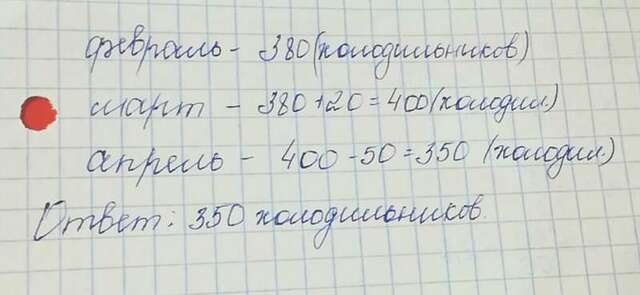 февраль - 380 (холодильников)
март - 380+20=400 (холодил)
апрель - 400-50=350 (холодил.)
Ответ: 350 холодильников.